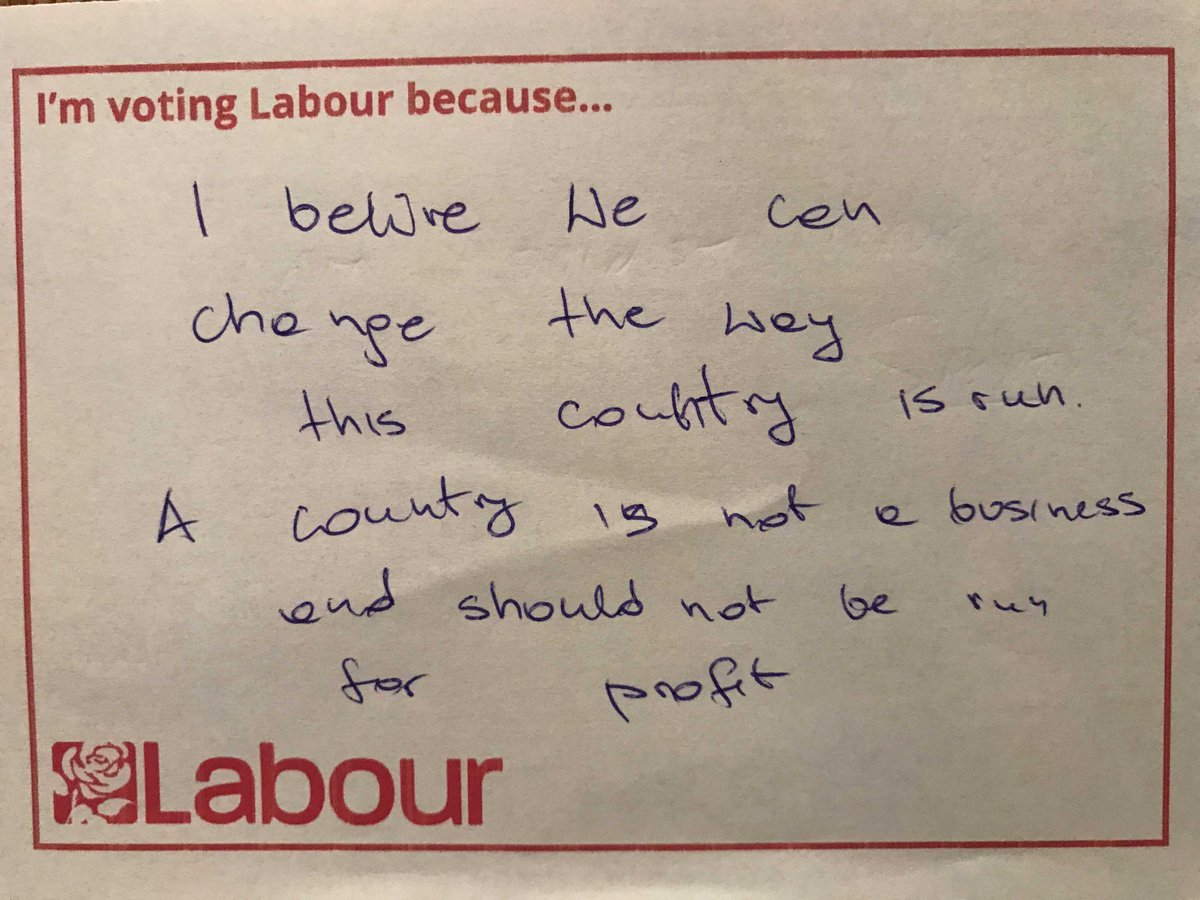 I'm voting Labour because...
I believe We can
change the way
this country is run.
A country is not a business
and should not be run
for profit
Labour